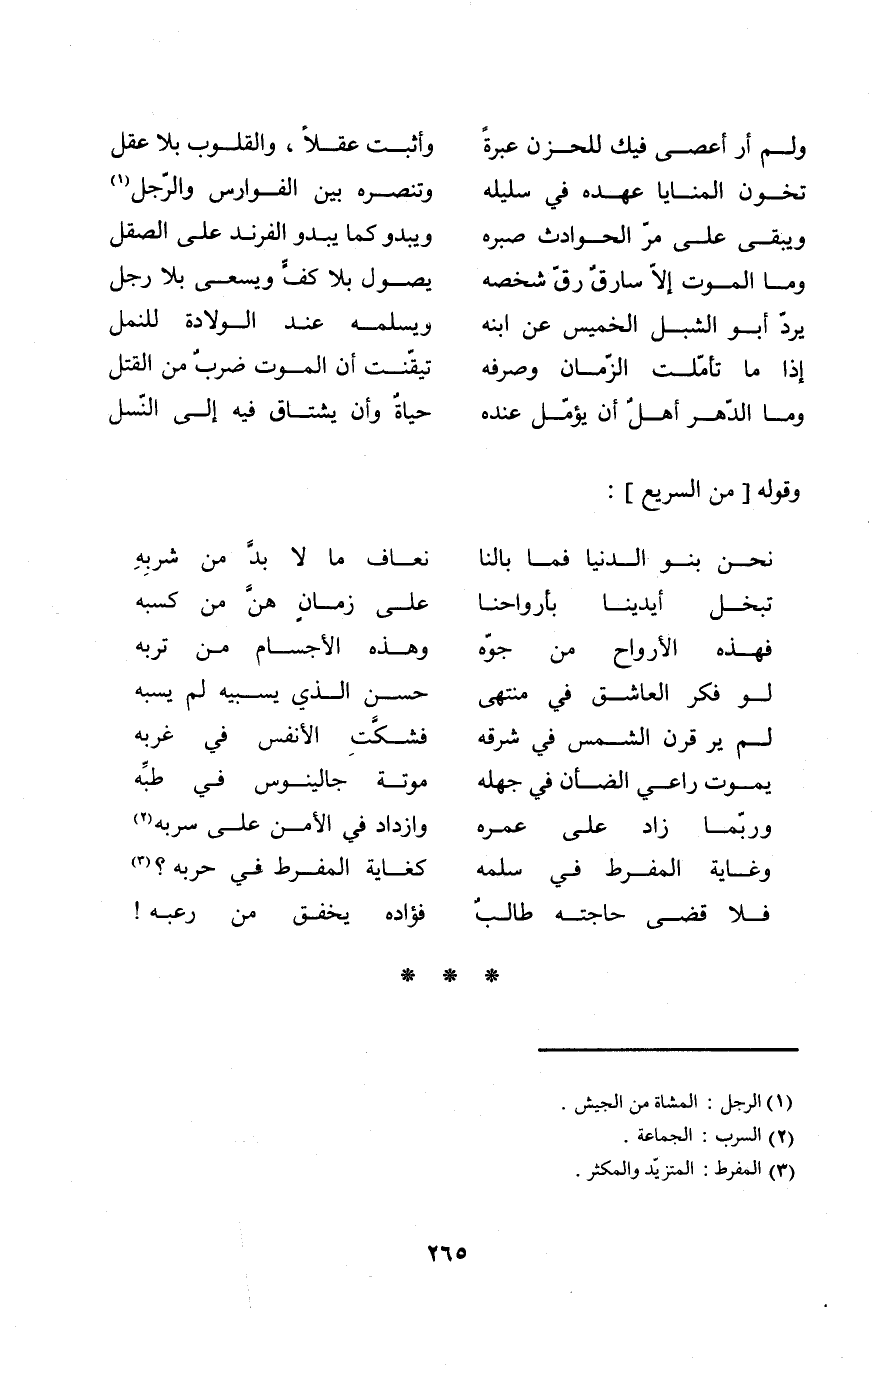 ولم أر أعصى فيك للحزن عبرةً وأثبت عقلاً ، والقلوب بلا عقل
تخون المنايا عهده في سليله وتنصره بين الفوارس والرّجل(١)
ويبقى على مرّ الحوادث صبره ويبدو كما يبدو الفرند على الصقل
وما الموت إلاّ سارقٌ رقّ شخصه يصول بلا كفٍّ ويسعى بلا رجل
يردّ أبو الشبل الخميس عن ابنه ويسلمه عند الولادة للنمل
إذا ما تأمّلت الزّمان وصرفه تيقّنت أن الموت ضربٌ من القتل
وما الدّهر أهلٌ أن يؤمّل عنده حياةٌ وأن يشتاق فيه إلى النّسل
وقوله [ من السريع ] :
نحن بنو الدنيا فما بالنا نعاف ما لا بدَّ من شربِهِ
تبخل أيدينا بأرواحنا على زمانٍ هنَّ من كسبه
فهذه الأرواح من جوّه وهذه الأجسام من تربه
لو فكر العاشق في منتهى حسن الذي يسبيه لم يسبه
لم ير قرن الشمس في شرقه فشكَّتِ الأنفس في غربه
يموت راعي الضأن في جهله موتة جالينوس في طبِّه
وربّما زاد على عمره وازداد في الأمن على سربه(٢)
وغاية المفرط في سلمه كغاية المفرط في حربه ؟(٣)
فلا قضى حاجته طالبٌ فؤاده يخفق من رعبه !
* * *
(١) الرجل : المشاة من الجيش .
(٢) السرب : الجماعة .
(٣) المفرط : المتزيّد والمكثر .
٢٦٥